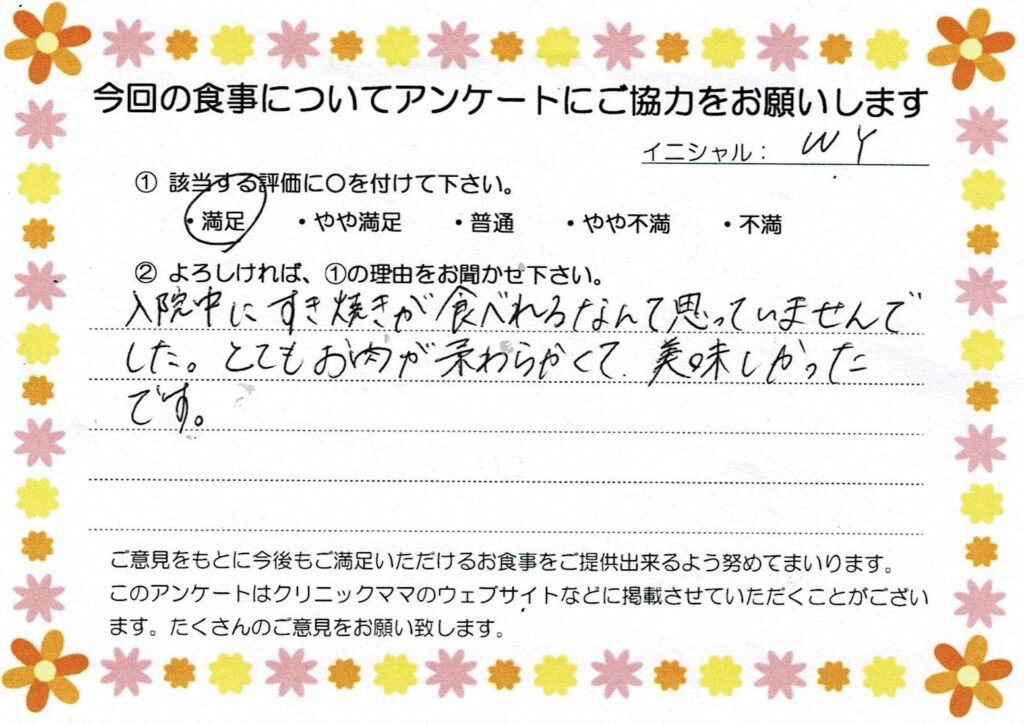 今回の食事についてアンケートにご協力をお願いします
イニシャル： W Y
① 該当する評価に〇を付けて下さい。
・満足 ・やや満足 ・普通 ・やや不満 ・不満
② よろしければ、①の理由をお聞かせ下さい。
入院中にすき焼きが食べれるなんて思っていませんで
した。とてもお肉が柔わらかくて、美味しかった
です。
ご意見をもとに今後もご満足いただけるお食事をご提供出来るよう努めてまいります。
このアンケートはクリニックママのウェブサイトなどに掲載させていただくことがござい
ます。たくさんのご意見をお願い致します。